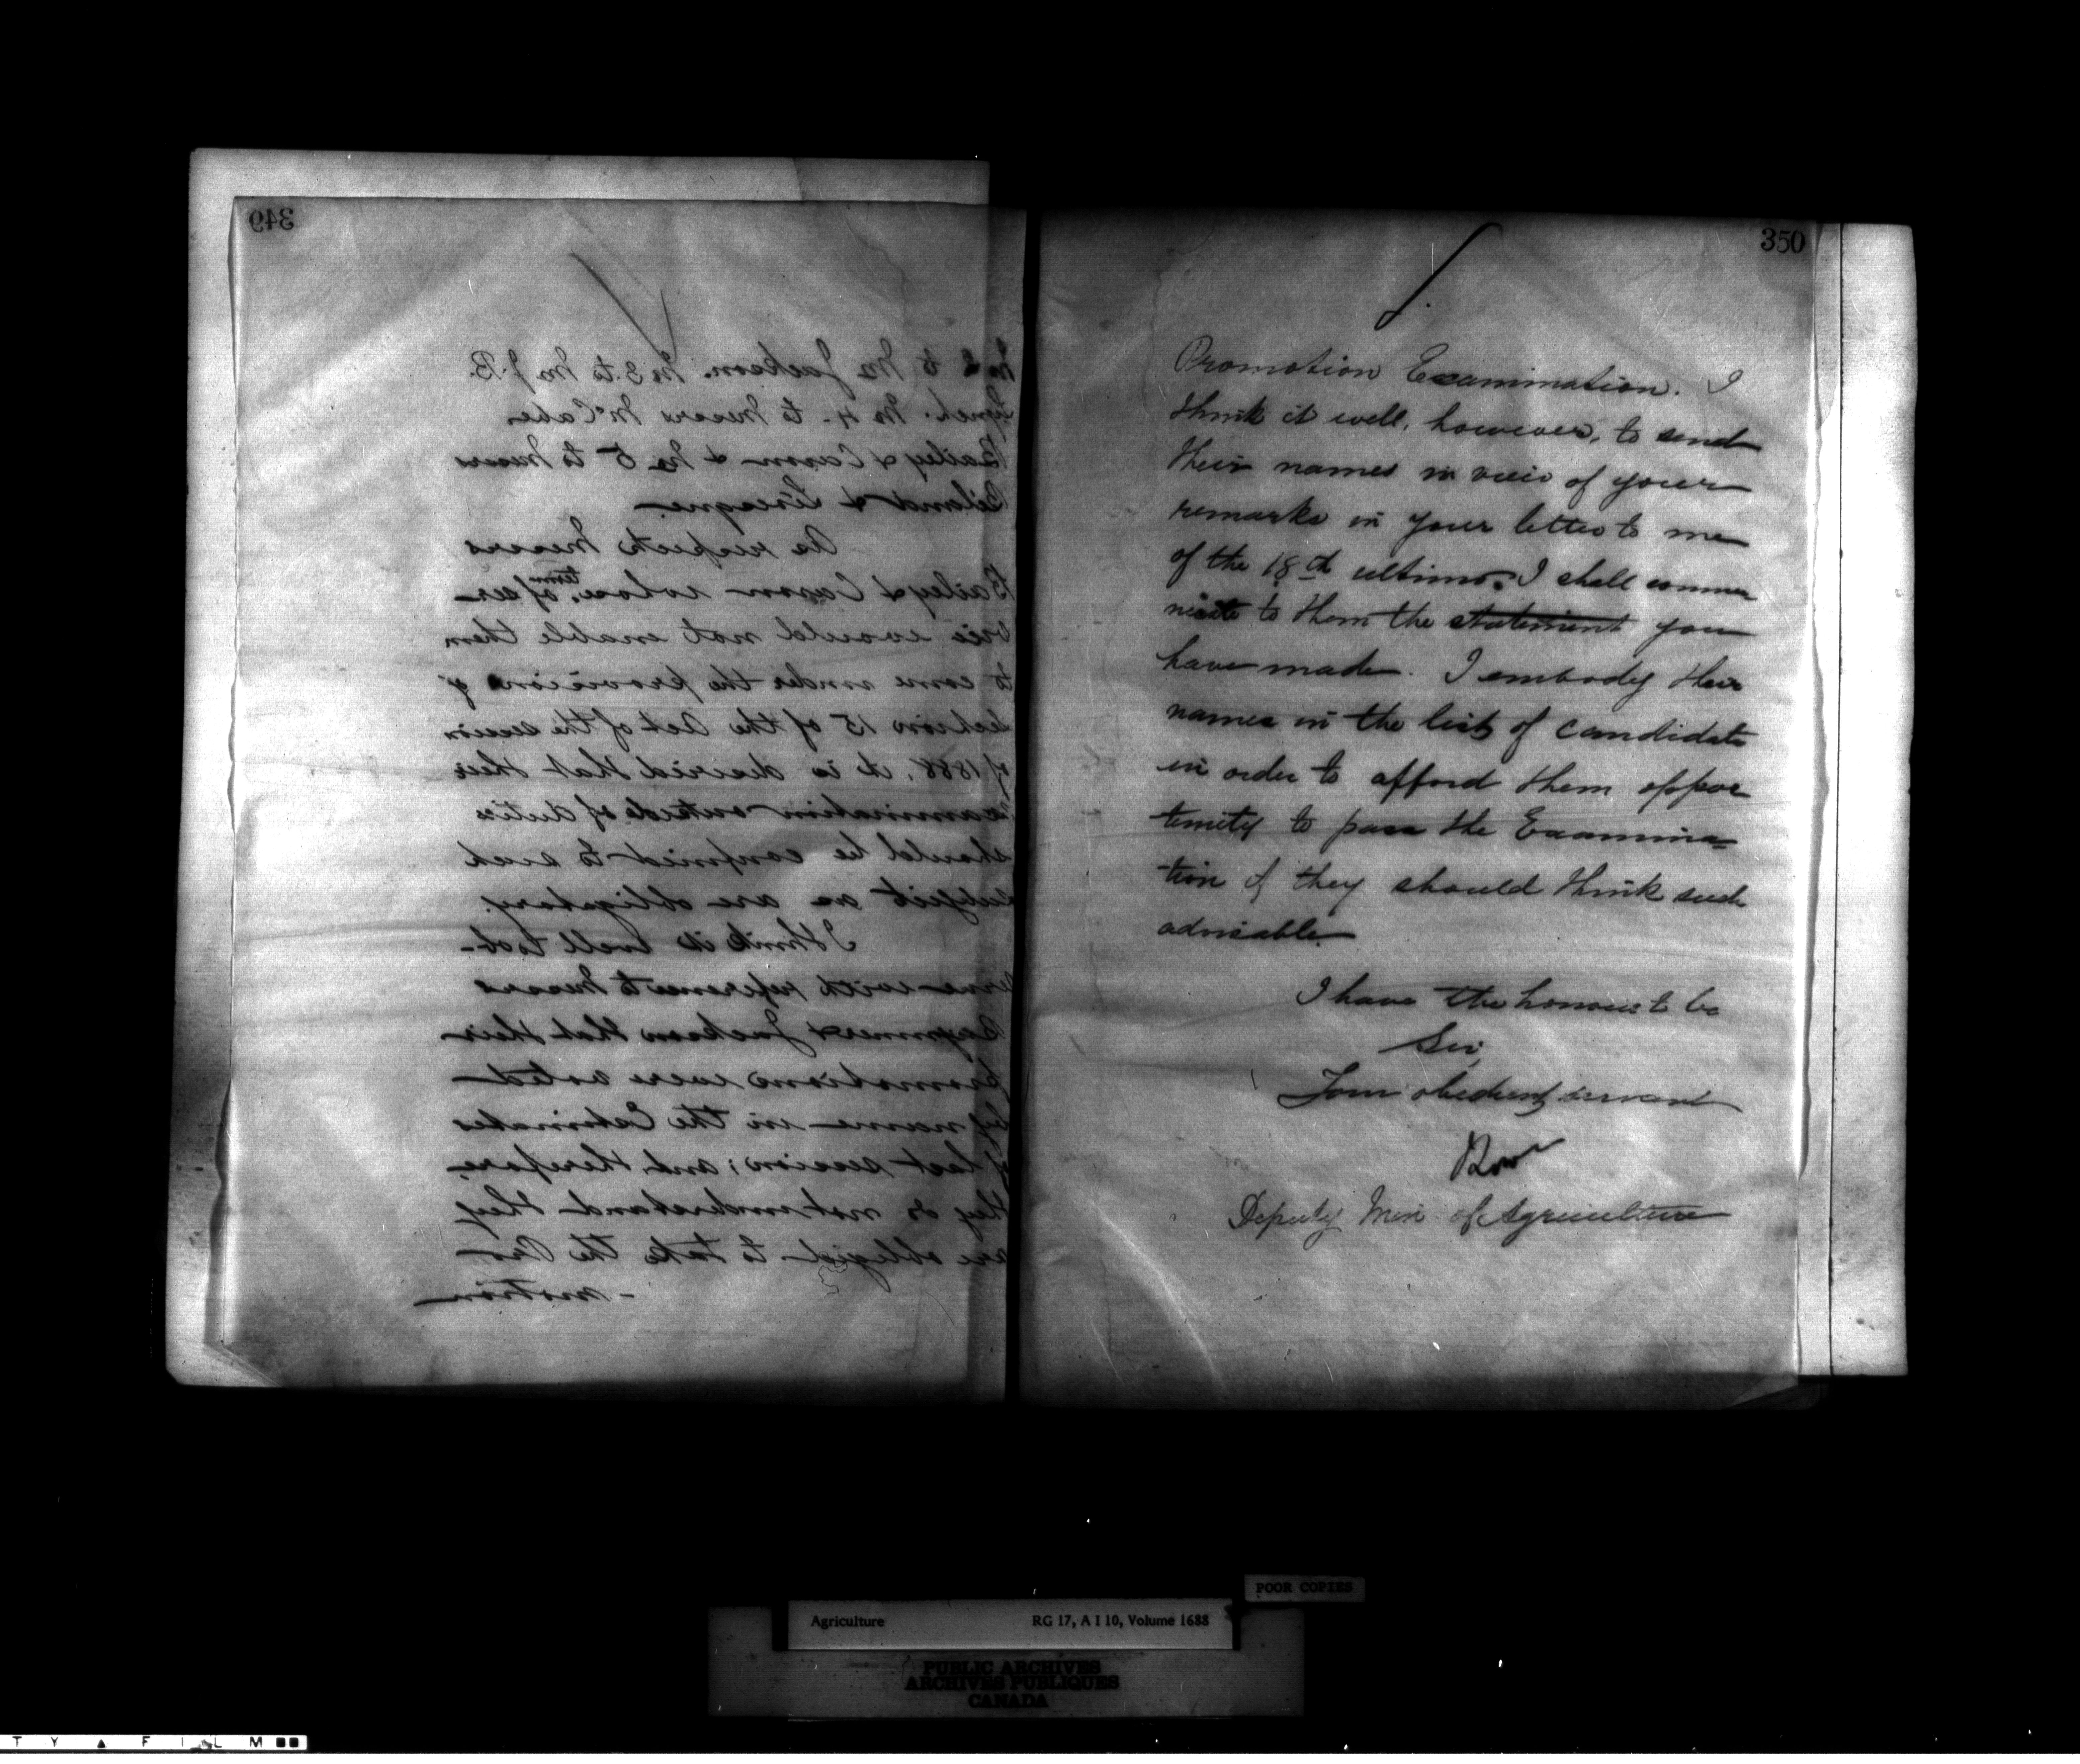 349
No 2 to Mr Jackson. No 3. to Mr J. B.
Lynch. No 4 - to Messrs McCabe
Bailey & Casson & No 5 to Messrs
Beland &
As respects Messrs
Bailey & Casson whose term of ser-
vice would not enable them
to come under the provision of
Section 15 of the Act of the session
of 1888, it is desired that their
examination outside of duties
should be confined to such
subject as are obligatory.
I think it well to ob-
serve with reference to Messrs
& Jackson that their
promotions were voted
by name in the Estimates
of last session; and, therefore,
they do not understand they
are obliged to take the Pro-
-motion
350
Promotion Examination. I
think it well, however, to send
their names in view of your
remarks in your letter to me
of the 18th ultimo. I shall commu
nicate to them the statement you
have made. I embody their
names in the list of candidates
in order to afford them oppor
tunity to pass the Examina-
tion if they should think such
advisable.
I have the honour to be
Sir,
Your obedient servant
Deputy Min. of Agriculture
POOR COPIES
Agriculture RG 17, A I 10, Volume 1688
PUBLIC ARCHIVES
ARCHIVES PUBLIQUES
CANADA
T Y ▲ F I L M